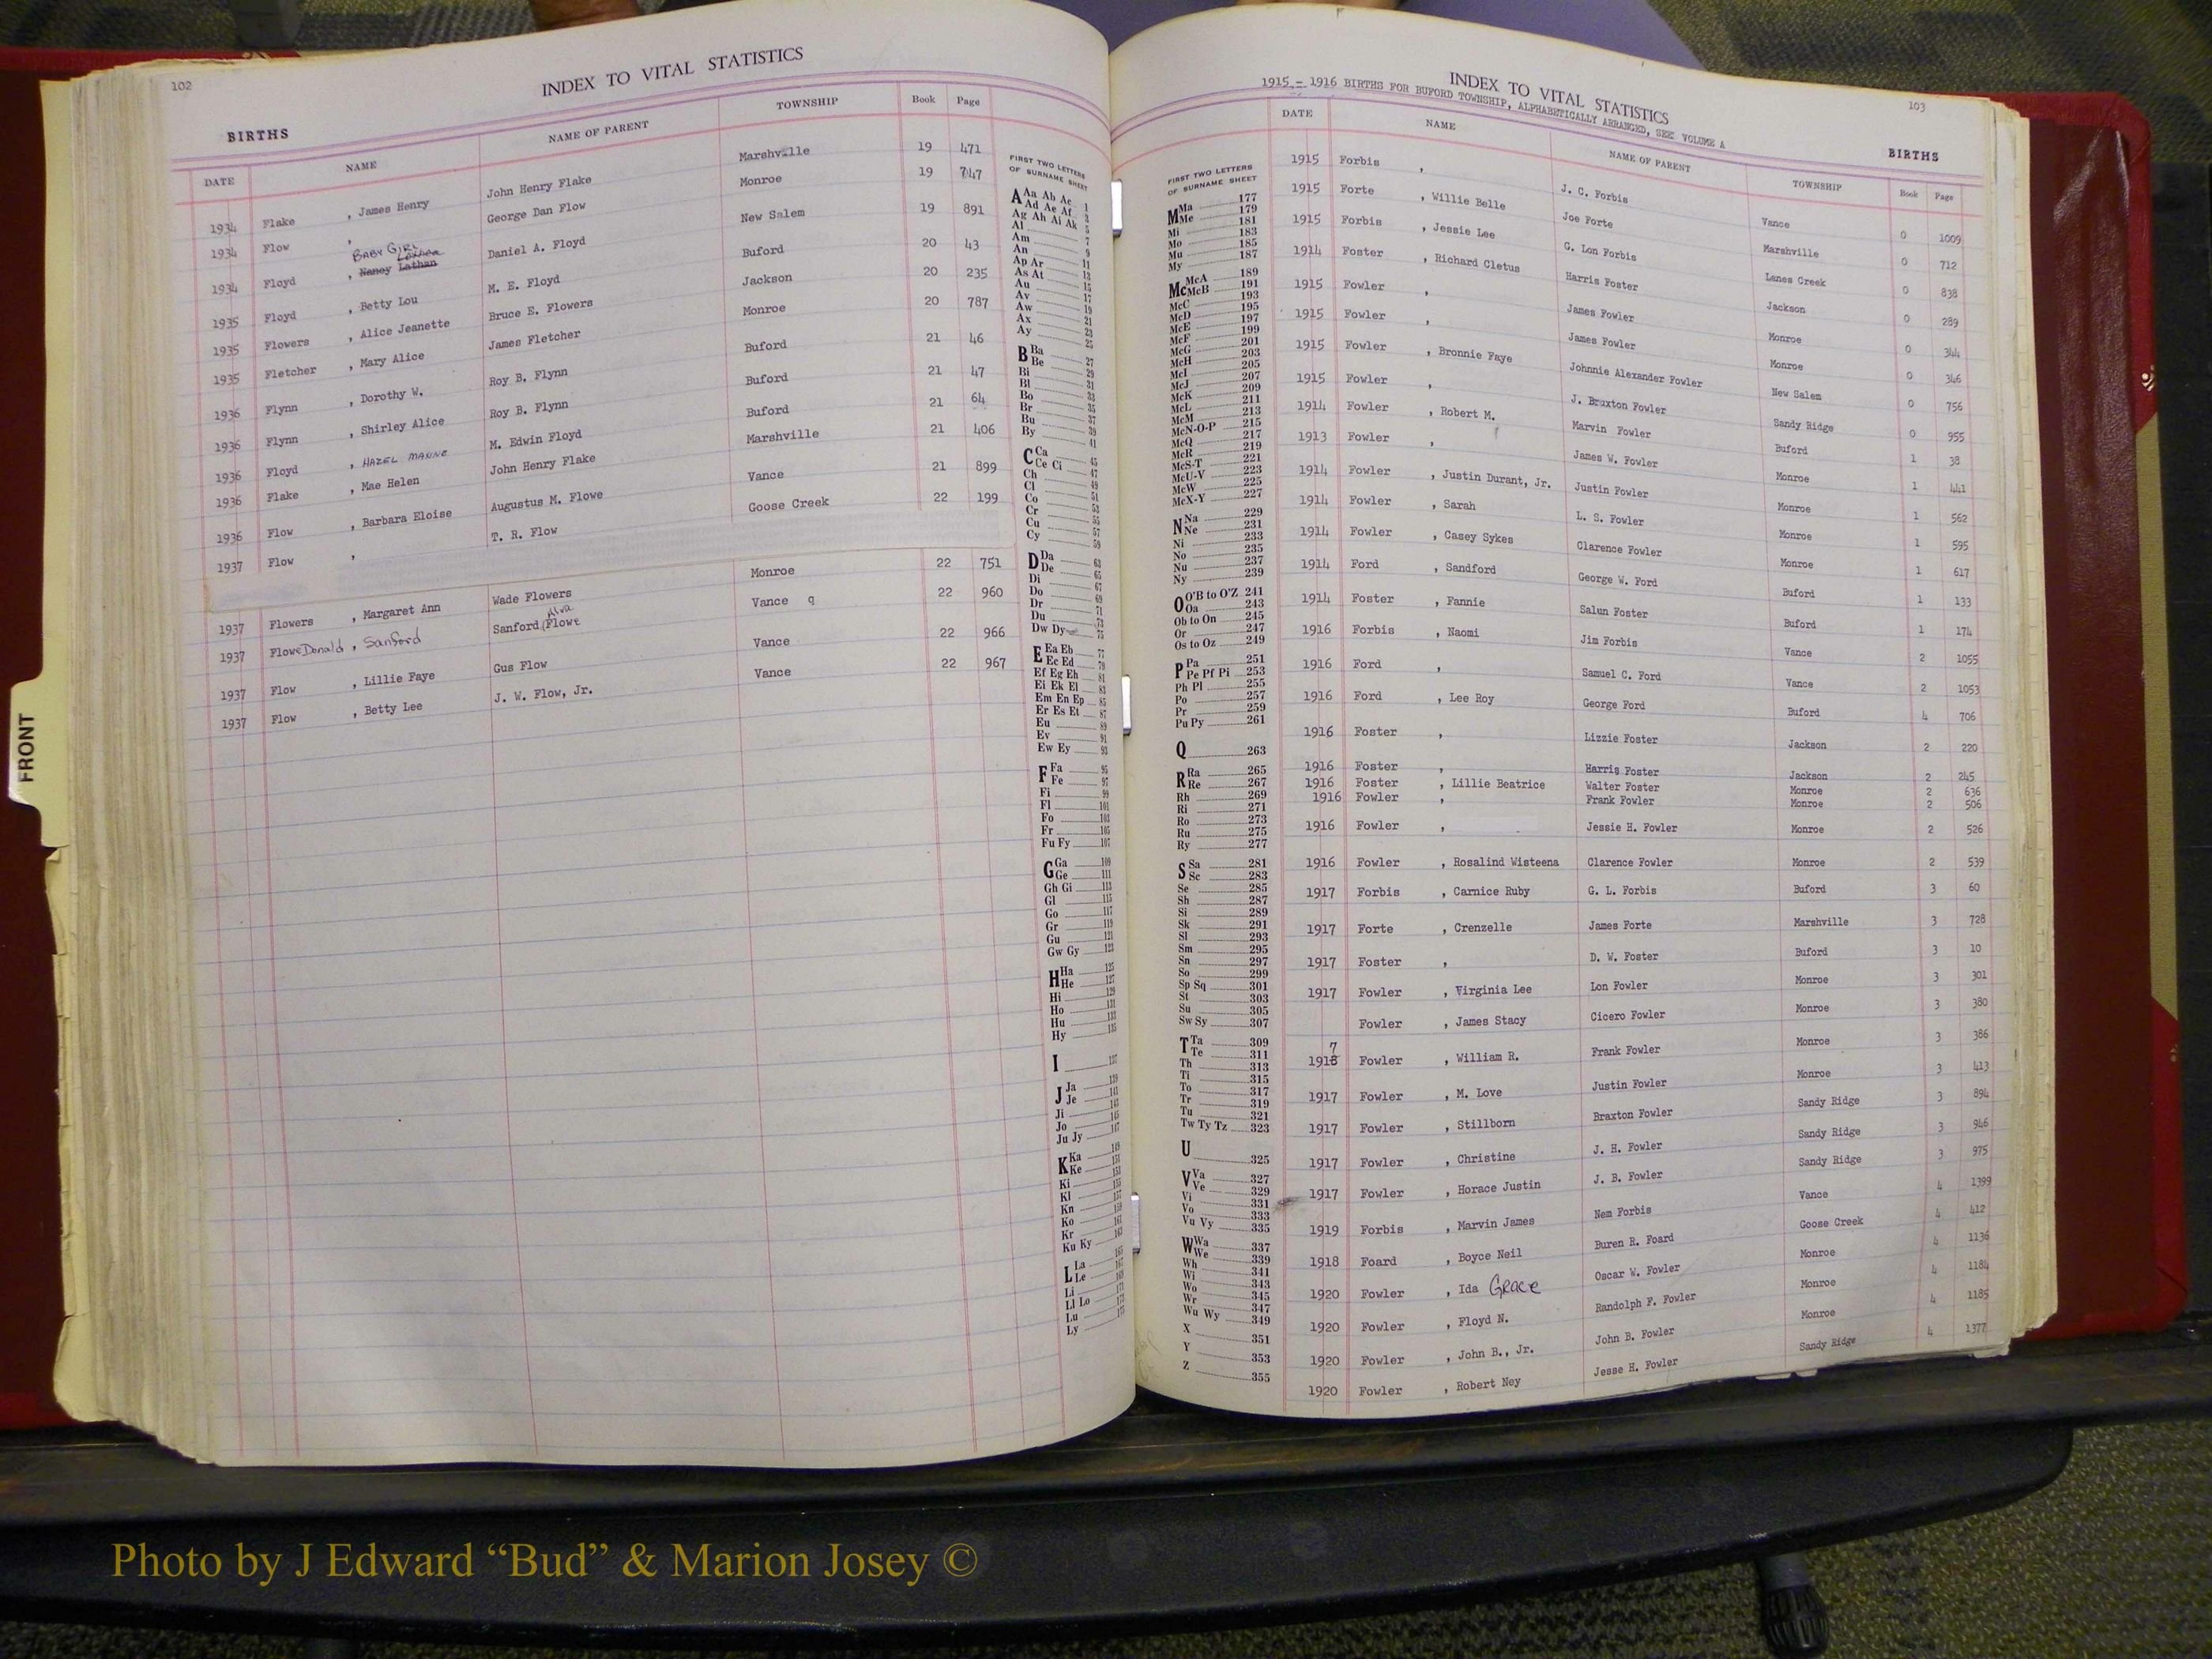 102
INDEX TO VITAL STATISTICS
BIRTHS
DATE NAME NAME OF PARENT TOWNSHIP Book Page
1934 Flake , James Henry John Henry Flake Marshville 19 471
1934 Flow , George Dan Flow Monroe 19 747
BABY GIRL
1934 Floyd , Nancy Lathan Daniel A. Floyd New Salem 19 891
1935 Floyd , Betty Lou M. E. Floyd Buford 20 43
1935 Flowers , Alice Jeanette Bruce E. Flowers Jackson 20 235
1935 Fletcher , Mary Alice James Fletcher Monroe 20 787
1936 Flynn , Dorothy W. Roy B. Flynn Buford 21 46
1936 Flynn , Shirley Alice Roy B. Flynn Buford 21 47
1936 Floyd , HAZEL MAXINE M. Edwin Floyd Buford 21 64
1936 Flake , Mae Helen John Henry Flake Marshville 21 406
1936 Flow , Barbara Eloise Augustus M. Flowe Vance 21 899
1937 Flow , T. R. Flow Goose Creek 22 199
1937 Flowers , Margaret Ann Wade Flowers Monroe 22 751
Alva
1937 Flowe Donald , Sanford Sanford Flowe Vance q 22 960
1937 Flow , Lillie Faye Gus Flow Vance 22 966
1937 Flow , Betty Lee J. W. Flow, Jr. Vance 22 967
FRONT
FIRST TWO LETTERS
OF SURNAME SHEET
A Aa Ab Ac 1
Ad Ae Af 3
Ag Ah Ai Ak 5
Al 7
Am 9
An 11
Ap Ar 13
As At 15
Au 17
Av 19
Aw 21
Ax 23
Ay 25
B Ba 27
Be 29
Bi 31
Bl 33
Bo 35
Br 37
Bu 39
By 41
C Ca 45
Ce Ci 47
Ch 49
Cl 51
Co 53
Cr 55
Cu 57
Cy 59
D Da 63
De 65
Di 67
Do 69
Dr 71
Du 73
Dw Dy 75
E Ea Eb 77
Ec Ed 79
Ef Eg Eh 81
Ei Ek El 83
Em En Ep 85
Er Es Et 87
Eu 89
Ev 91
Ew Ey 93
F Fa 95
Fe 97
Fi 99
Fl 101
Fo 103
Fr 105
Fu Fy 107
G Ga 109
Ge 111
Gh Gi 113
Gl 115
Go 117
Gr 119
Gu 121
Gw Gy 123
H Ha 125
He 127
Hi 129
Ho 131
Hu 133
Hy 135
I 137
J Ja 139
Je 141
Ji 143
Jo 145
Ju Jy 147
K Ka 149
Ke 151
Ki 153
Kl 155
Kn 157
Ko 159
Kr 161
Ku Ky 163
L La 165
Le 167
Li 169
Ll Lo 171
Lu 173
Ly 175
103
INDEX TO VITAL STATISTICS
1915 - 1916 BIRTHS FOR BUFORD TOWNSHIP, ALPHABETICALLY ARRANGED, SEE VOLUME A
BIRTHS
FIRST TWO LETTERS
OF SURNAME SHEET
M Ma 177
Me 179
Mi 181
Mo 183
Mu 185
My 187
Mc McA 189
McB 191
McC 193
McD 195
McE 197
McF 199
McG 201
McH 203
McI 205
McJ 207
McK 209
McL 211
McM 213
McN-O-P 215
McQ 217
McR 219
McS-T 221
McU-V 223
McW 225
McX-Y 227
N Na 229
Ne 231
Ni 233
No 235
Nu 237
Ny 239
O O'B to O'Z 241
Oa 243
Ob to On 245
Or 247
Os to Oz 249
P Pa 251
Pe Pf Pi 253
Ph Pl 255
Po 257
Pr 259
Pu Py 261
Q 263
R Ra 265
Re 267
Rh 269
Ri 271
Ro 273
Ru 275
Ry 277
S Sa 281
Sc 283
Se 285
Sh 287
Si 289
Sk 291
Sl 293
Sm 295
Sn 297
So 299
Sp Sq 301
St 303
Su 305
Sw Sy 307
T Ta 309
Te 311
Th 313
Ti 315
To 317
Tr 319
Tu 321
Tw Ty Tz 323
U 325
V Va 327
Ve 329
Vi 331
Vo 333
Vu Vy 335
W Wa 337
We 339
Wh 341
Wi 343
Wo 345
Wr 347
Wu Wy 349
X 351
Y 353
Z 355
DATE NAME NAME OF PARENT TOWNSHIP Book Page
1915 Forbis , J. C. Forbis Vance 0 1009
1915 Forte , Willie Belle Joe Forte Marshville 0 712
1915 Forbis , Jessie Lee G. Lon Forbis Lanes Creek 0 838
1914 Foster , Richard Cletus Harris Foster Jackson 0 289
1915 Fowler , James Fowler Monroe 0 344
1915 Fowler , James Fowler Monroe 0 346
1915 Fowler , Bronnie Faye Johnnie Alexander Fowler New Salem 0 756
1915 Fowler , J. Bruxton Fowler Sandy Ridge 0 955
1914 Fowler , Robert M. Marvin Fowler Buford 1 38
1913 Fowler , James W. Fowler Monroe 1 441
1914 Fowler , Justin Durant, Jr. Justin Fowler Monroe 1 562
1914 Fowler , Sarah L. S. Fowler Monroe 1 595
1914 Fowler , Casey Sykes Clarence Fowler Monroe 1 617
1914 Ford , Sandford George W. Ford Buford 1 133
1914 Foster , Fannie Salun Foster Buford 1 174
1916 Forbis , Naomi Jim Forbis Vance 2 1055
1916 Ford , Samuel C. Ford Vance 2 1053
1916 Ford , Lee Roy George Ford Buford 4 706
1916 Foster , Lizzie Foster Jackson 2 220
1916 Foster , Harris Foster Jackson 2 245
1916 Foster , Lillie Beatrice Walter Foster Monroe 2 636
1916 Fowler , Frank Fowler Monroe 2 506
1916 Fowler , Jessie H. Fowler Monroe 2 526
1916 Fowler , Rosalind Wisteena Clarence Fowler Monroe 2 539
1917 Forbis , Carnice Ruby G. L. Forbis Buford 3 60
1917 Forte , Crenzelle James Forte Marshville 3 728
1917 Foster , D. W. Foster Buford 3 10
1917 Fowler , Virginia Lee Lon Fowler Monroe 3 301
Fowler , James Stacy Cicero Fowler Monroe 3 380
7
1918 Fowler , William R. Frank Fowler Monroe 3 386
1917 Fowler , M. Love Justin Fowler Monroe 3 413
1917 Fowler , Stillborn Braxton Fowler Sandy Ridge 3 894
1917 Fowler , Christine J. H. Fowler Sandy Ridge 3 946
1917 Fowler , Horace Justin J. B. Fowler Sandy Ridge 3 975
1919 Forbis , Marvin James Nem Forbis Vance 4 1399
1918 Foard , Boyce Neil Buren R. Foard Goose Creek 4 412
1920 Fowler , Ida Grace Oscar W. Fowler Monroe 4 1136
1920 Fowler , Floyd N. Randolph F. Fowler Monroe 4 1184
1920 Fowler , John B., Jr. John B. Fowler Monroe 4 1185
1920 Fowler , Robert Ney Jesse H. Fowler Sandy Ridge 4 1377
Photo by J Edward “Bud” & Marion Josey ©